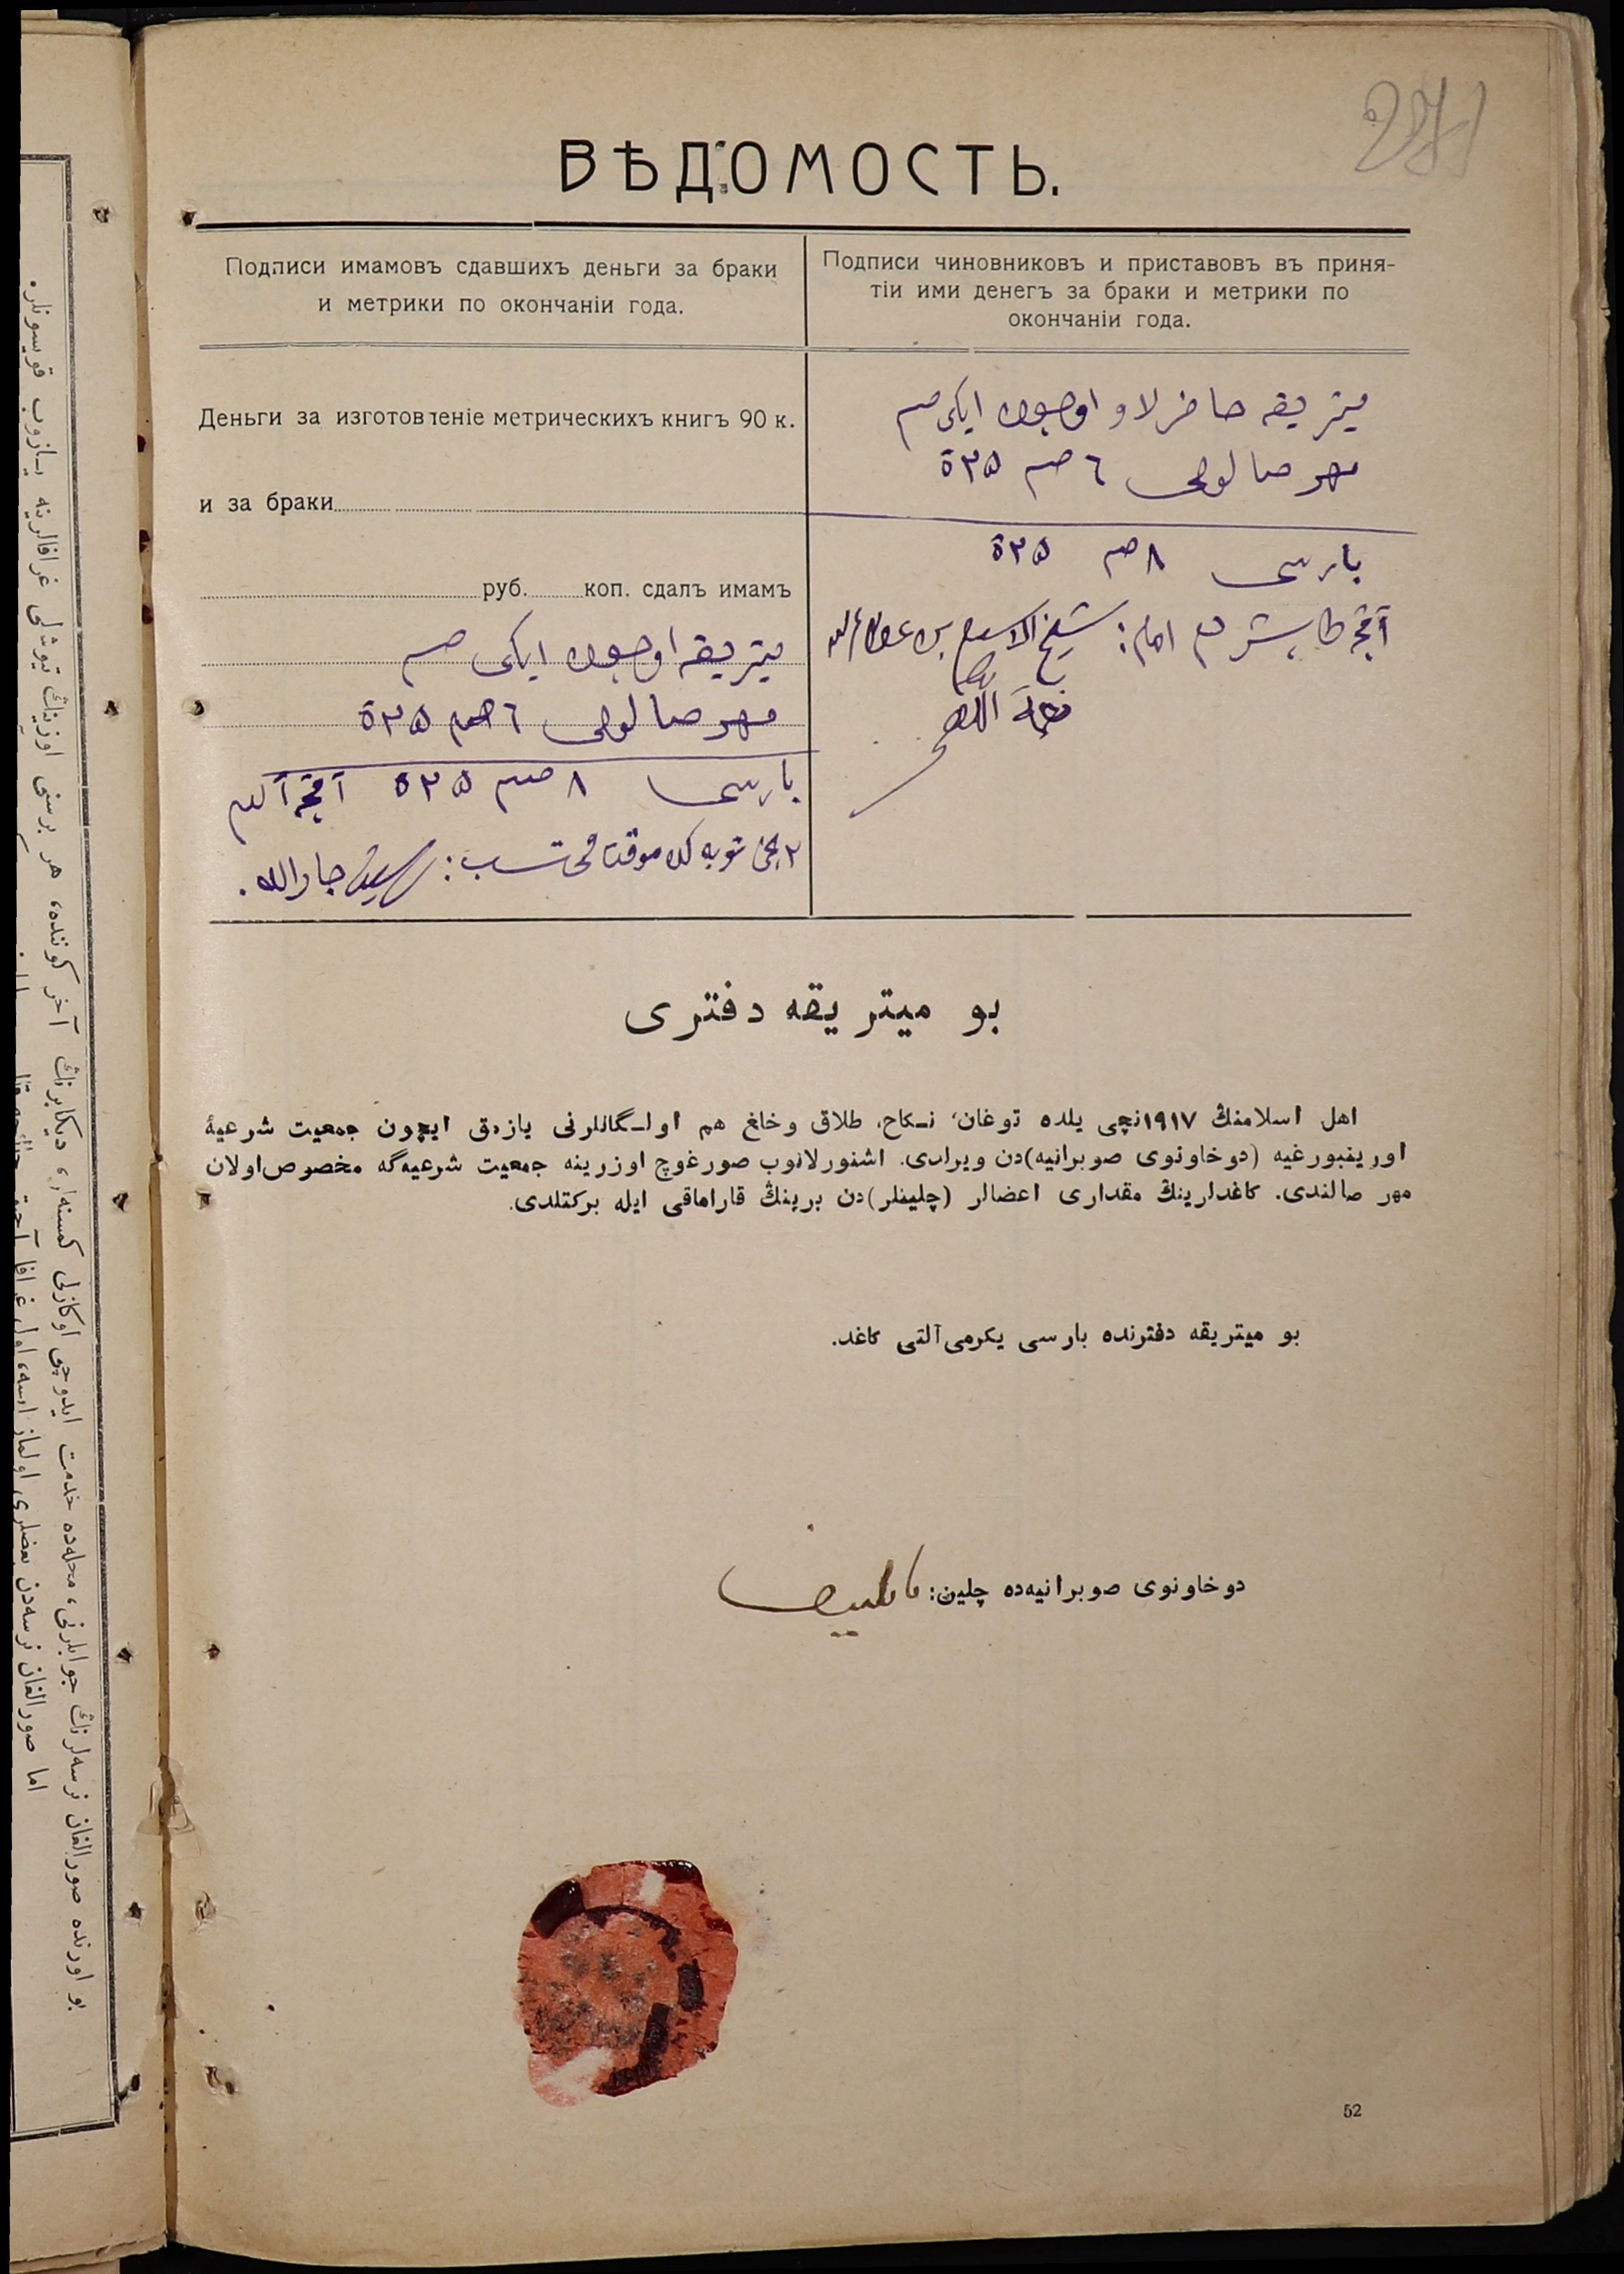 271
ВѢДОМОСТЬ.
Подписи имамовъ сдавшихъ деньги за браки
и метрики по окончаніи года.
Подписи чиновниковъ и приставовъ въ приня-
тіи ими денегъ за браки и метрики по
окончаніи года.
Деньги за изготовленіе метрическихъ книгъ 90 к.
и за браки
руб. коп. сдалъ имамъ
ميتريقه اوچون ايكى صم
مهر صالوى ٦ صم ٢٥ ت
بارسى ٨ صم ٢٥ ت آقچه آلدم
موقت محتسب: جارالله.
ميتريقه حاضرلاو اوچون ايكى صم
مهر صالوى ٦ صم ٢٥ ت
بارسى ٨ صم ٢٥ ت
آقچه طاپشردم امام: شيخ الاسلام بن
بو ميتريقه دفترى
اهل اسلامنڭ ١٩١٧نچى يلده توغان، نـكاح، طلاق وخلغ هم اولـگانلرنى يازمق ايچون جمعيت شرعيۀ
اورينبورغيه (دوخاونوى صوبرانيه)دن ويرلدى. اشنورلانوب صورغوچ اوزرينه جمعيت شرعيه‌گه مخصوص اولان
مهر صالندى. كاغدلرينڭ مقدارى اعضالر (چلينلر)دن برينڭ قاراماقى ايله بركتلدى.
بو ميتريقه دفترنده بارسى يكرمى آلتى كاغد.
دوخاونوى صوبرانيه‌ده چلين:
52
بو اورنده صورالغان نرسه‌لرنڭ جوابلرنى، محله‌ده خدمت ايدوچى اوكازلى كمسنه‌لر، ديكابرنڭ آخر كوننده، هر برسنى اوزينڭ تيوشلى غرافالرينه يـازوب قويسونلر.
اما صورالغان نرسه‌دن بعضلرى اولماز ايسه، اول غرافا